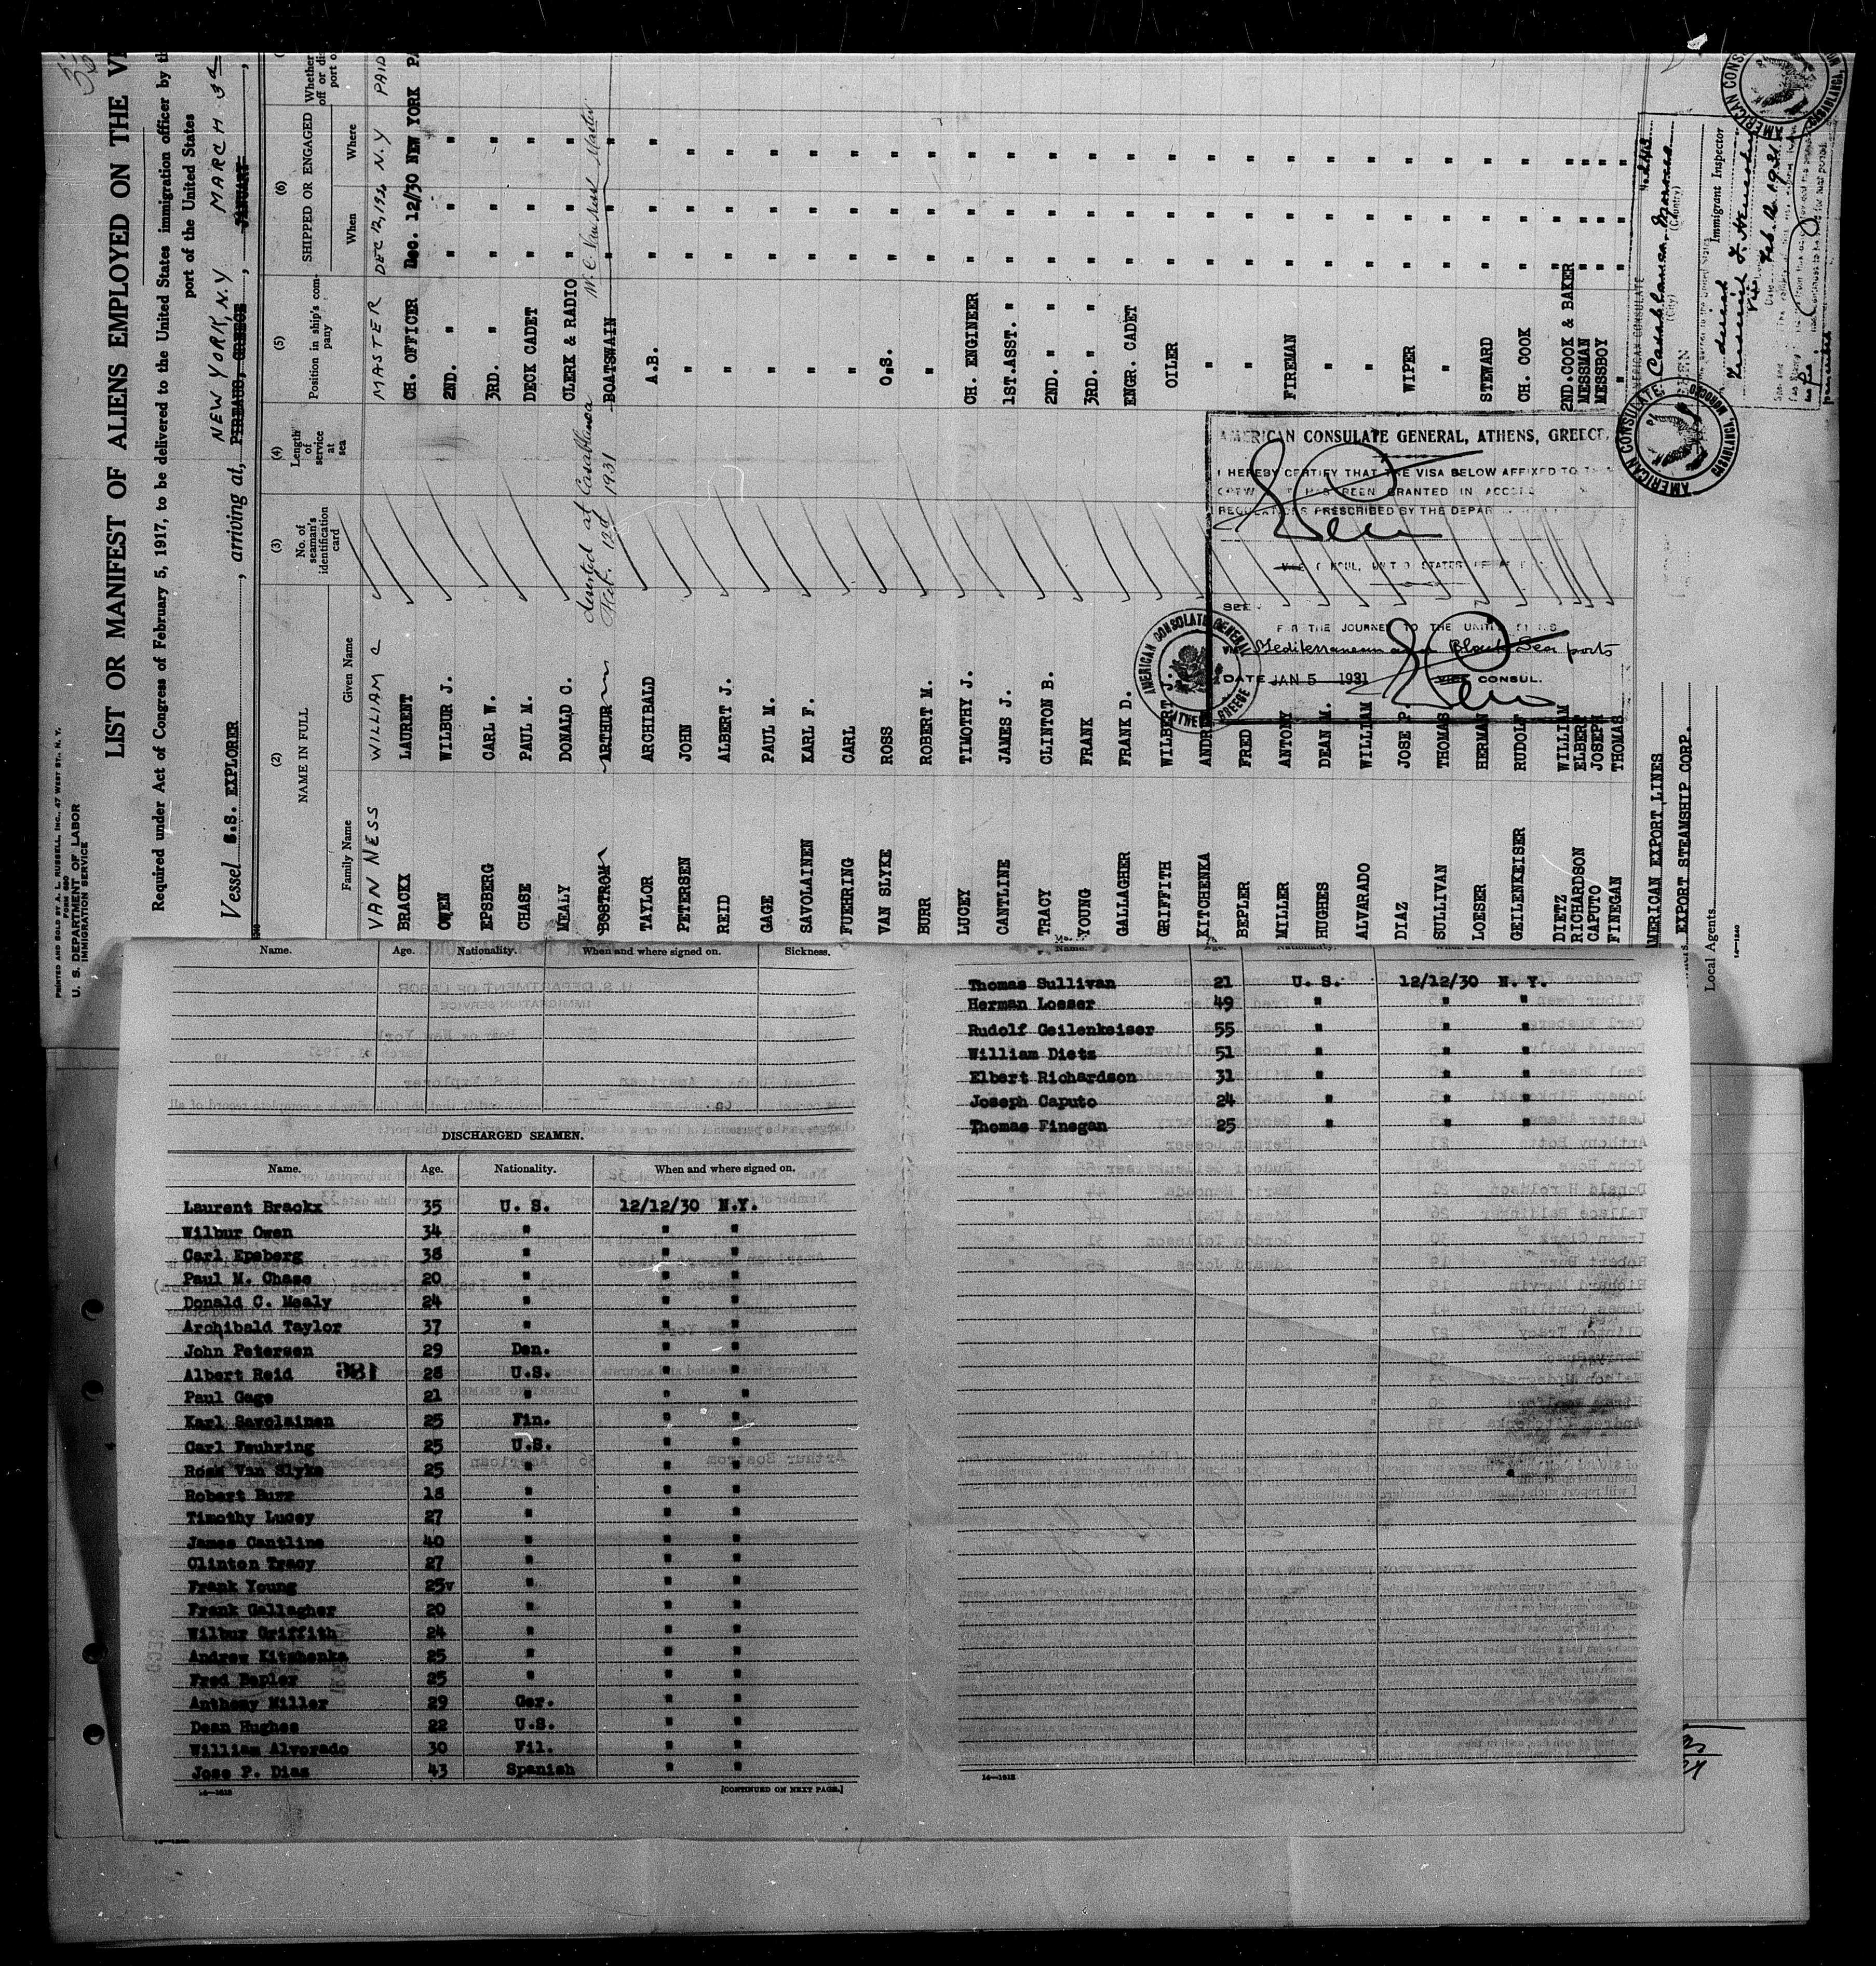 PRINTED AND SOLD BY A. L. RUSSELL, INC., 47 WEST ST., N. Y.
FORM 680
U. S. DEPARTMENT OF LABOR
IMMIGRATION SERVICE
LIST OR MANIFEST OF ALIENS EMPLOYED ON THE
Required under Act of Congress of February 5, 1917, to be delivered to the United States immigration officer by
port of the United States
NEW YORK, N.Y MARCH 3d
Vessel S.S. EXPLORER, arriving at, PIREAUS, GREECE, JANUARY
(2) (3) (4) (5) (6)
NAME IN FULL No. of seaman's identification card Length of service at sea Position in ship's company SHIPPED OR ENGAGED Whether
Family Name Given Name When Where
VAN NESS WILLIAM C MASTER DEC 12, 1930 N.Y PAID
BRACKX LAURENT CH. OFFICER Dec. 12/30 NEW YORK
OWEN WILBUR J. 2ND. " " " "
EPSBERG CARL W. 3RD. " " " "
CHASE PAUL M. DECK CADET " " "
MEALY DONALD C. CLERK & RADIO " " "
BOSTROM ARTHUR BOATSWAIN " " "
deserted at Casablanca W. C. Van Ness Master
Feb. 12th 1931
TAYLOR ARCHIBALD A.B. " " "
PETERSEN JOHN " " " "
REID ALBERT J. " " " "
GAGE PAUL M. " " " "
SAVOLAINEN KARL F. " " " "
FUEHRING CARL " " " "
VAN SLYKE ROSS O.S. " " "
BURR ROBERT M. " " " "
LUCEY TIMOTHY J. CH. ENGINEER " " "
CANTLINE JAMES J. 1ST.ASST. " " " "
TRACY CLINTON B. 2ND. " " " "
YOUNG FRANK 3RD. " " " "
GALLAGHER FRANK D. ENGR. CADET " " "
GRIFFITH WILBERT J. OILER " " "
KITCHENKA ANDREW " " " "
BEPLER FRED " " " "
MILLER ANTONY FIREMAN " " "
HUGHES DEAN M. " " " "
ALVARADO WILLIAM " " " "
DIAZ JOSE P. WIPER " " "
SULLIVAN THOMAS " " " "
LOESER HERMAN STEWARD " " "
GEILENKEISER RUDOLF CH. COOK " " "
DIETZ WILLIAM 2ND.COOK & BAKER " " "
RICHARDSON ELBERT MESSMAN " " "
CAPUTO JOSEPH MESSBOY " " "
FINEGAN THOMAS " " "
AMERICAN EXPORT LINES
EXPORT STEAMSHIP CORP.
Local Agents
Immigrant Inspector
AMERICAN CONSULATE GENERAL, ATHENS, GREECE.
I HEREBY CERTIFY THAT THE VISA BELOW AFFIXED TO
CREW HAS BEEN GRANTED IN
REGULATIONS PRESCRIBED BY THE
SEEN
FOR THE JOURNEY TO THE UNITED STATES
VIA Mediterranean and Black Sea ports
DATE JAN 5 1931 VICE CONSUL.
AMERICAN CONSULATE GENERAL ATHENS GREECE
AMERICAN CONSULATE
Casablanca, Morocco
(City) (Country)
AMERICAN CONSULATE CASABLANCA, MOROCCO
Feb. 12 1931
Name. Age. Nationality. When and where signed on. Sickness.
DISCHARGED SEAMEN.
Name. Age. Nationality. When and where signed on.
Laurent Brackx 35 U. S. 12/12/30 N.Y.
Wilbur Owen 34 " " "
Carl Epsberg 38 " " "
Paul M. Chase 20 " " "
Donald C. Mealy 24 " " "
Archibald Taylor 37 " " "
John Petersen 29 Den. " "
Albert Reid 381 28 U.S. " "
Paul Gage 21 " " "
Karl Savolainen 25 Fin. " "
Carl Feuhring 25 U.S. " "
Ross Van Slyke 25 " " "
Robert Burr 18 " " "
Timothy Lucey 27 " " "
James Cantline 40 " " "
Clinton Tracy 27 " " "
Frank Young 25v " " "
Frank Gallagher 20 " " "
Wilbur Griffith 24 " " "
Andrew Kitchenka 25 " " "
Fred Bepler 25 " " "
Anthony Miller 29 Ger. " "
Dean Hughes 22 U.S. " "
William Alvorado 30 Fil. " "
Jose P. Dias 43 Spanish " "
16—1615 [CONTINUED ON NEXT PAGE.]
Thomas Sullivan 21 U. S. 12/12/30 N. Y.
Herman Loeser 49 " " "
Rudolf Geilenkeiser 55 " " "
William Dietz 51 " " "
Elbert Richardson 31 " " "
Joseph Caputo 24 " " "
Thomas Finegan 25 " " "